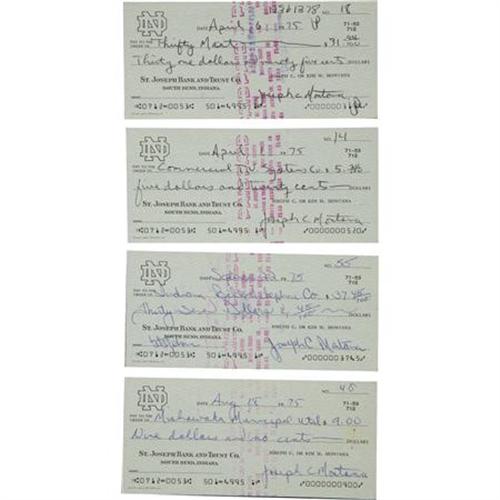 NO. 18
DATE April 6 19 75
71-53
712
PAY TO THE
ORDER OF Thifty Mart $ 31.
Thirty one dollars and twenty five cents DOLLARS
ST. JOSEPH BANK AND TRUST CO.
SOUTH BEND, INDIANA
JOSEPH C. OR KIM M. MONTANA
Joseph C Montana
0712-0053 501-4995
ND
NO. 14
DATE April 19 75
71-53
712
PAY TO THE
ORDER OF Commercial TV Systems Co $ 5.
five dollars and twenty cents DOLLARS
ST. JOSEPH BANK AND TRUST CO.
SOUTH BEND, INDIANA
JOSEPH C. OR KIM M. MONTANA
Joseph C. Montana
0712-0053 501-4995 0000000520
ND
NO. 55
DATE 19 75
71-53
712
PAY TO THE
ORDER OF Indiana Bell Telephone Co $ 37 45/100
Thirty Seven Dollars & 45/100 DOLLARS
ST. JOSEPH BANK AND TRUST CO.
SOUTH BEND, INDIANA
JOSEPH C. OR KIM M. MONTANA
Joseph C Montana
0712-0053 501-4995 0000003745
ND
NO. 48
DATE Aug 18 19 75
71-53
712
PAY TO THE
ORDER OF Mishawaka Municipal Util $ 9.00
Nine dollars and no cents DOLLARS
ST. JOSEPH BANK AND TRUST CO.
SOUTH BEND, INDIANA
JOSEPH C. OR KIM M. MONTANA
Joseph C Montana
0712-0053 501-4995 0000000900